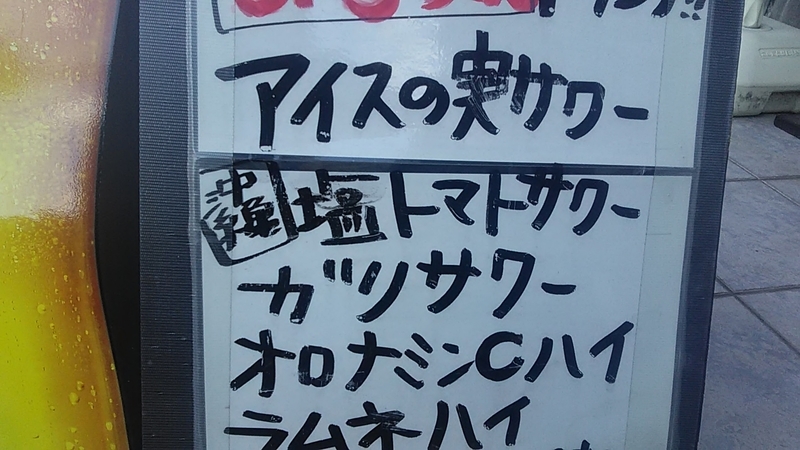 アイスの実サワー
沖縄 塩トマトサワー
ガツサワー
オロナミンCハイ
ラムネハイ